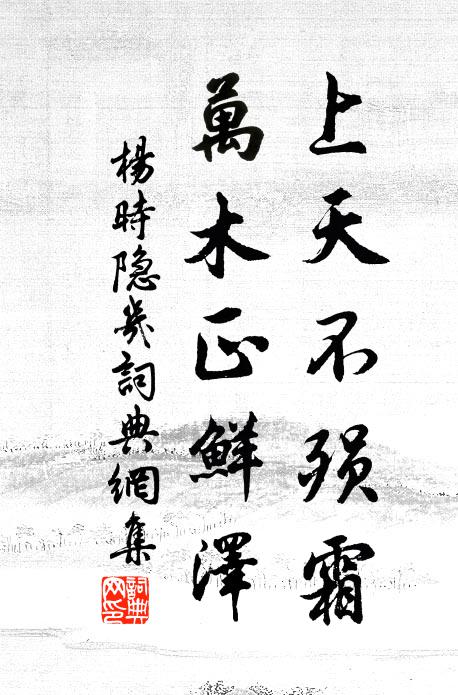 上天不殞霜
萬木正鮮澤
楊時隐几詞典網集
詞典网印